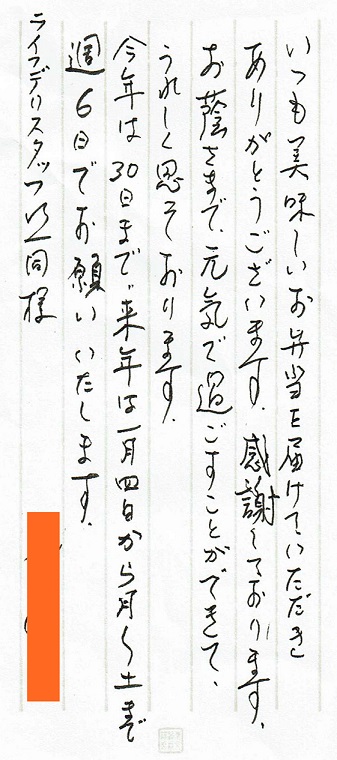 いつも美味しいお弁当を届けていただき
ありがとうございます。感謝しております。
お蔭さまで、元気で過ごすことができて、
うれしく思っております。
今年は30日まで、来年は一月四日から月〜土まで
週6日でお願いいたします。
ライフデリスタッフ一同様